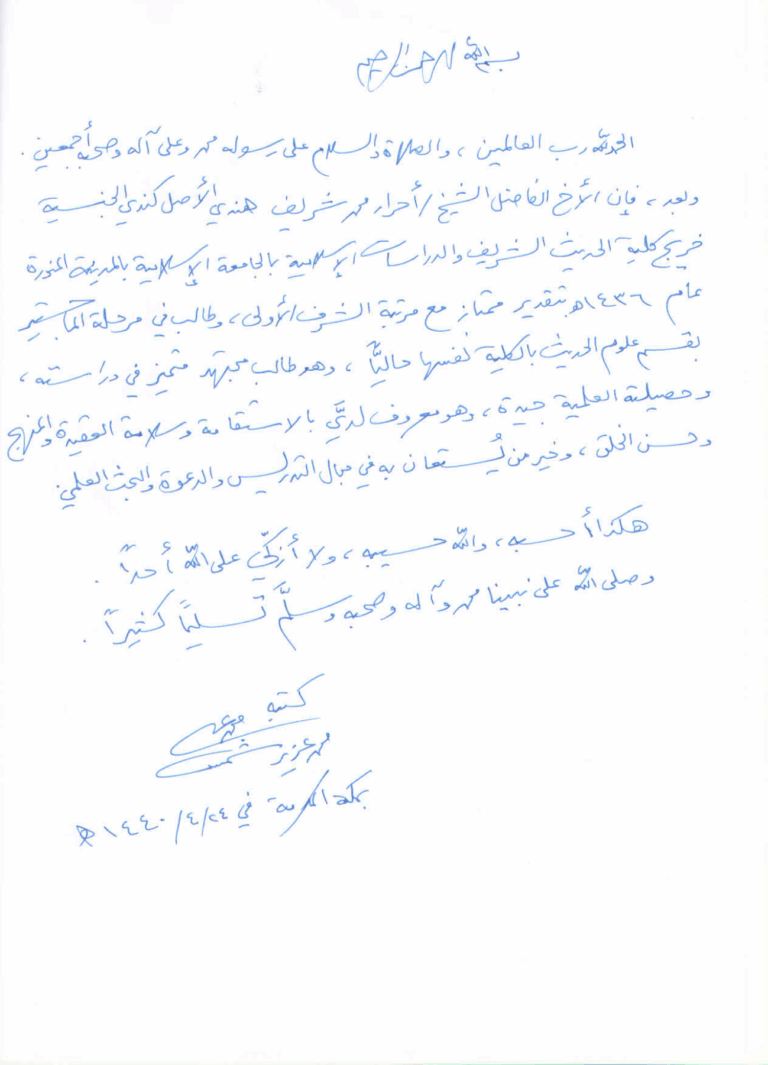 بسم الله الرحمن الرحيم
الحمد لله رب العالمين ، والصلاة والسلام على رسوله محمد وعلى آله وصحبه أجمعين .
وبعد ، فإن الأخ الفاضل الشيخ / أحرار محمد شريف هندي الأصل كندي الجنسية
خريج كلية الحديث الشريف والدراسات الإسلامية بالجامعة الإسلامية بالمدينة المنورة
عام ١٤٣٦هـ بتقدير ممتاز مع مرتبة الشرف الأولى ، وطالب في مرحلة الماجستير
بقسم علوم الحديث بالكلية نفسها حاليًّا ، وهو طالب مجتهد متميز في دراسته ،
وحصيلته العلمية جيدة ، وهو معروف لديَّ بالاستقامة وسلامة العقيدة والمنهج
وحسن الخلق ، وخير من يُستعان به في مجال التدريس والدعوة والبحث العلمي .
هكذا أحسبه ، والله حسيبه ، ولا أزكّي على الله أحدًا .
وصلى الله على نبينا محمد وآله وصحبه وسلَّم تسليمًا كثيرًا .
كتبه
محمد عزير شمس
بمكة المكرمة في ٢٤/٤/١٤٤٠هـ